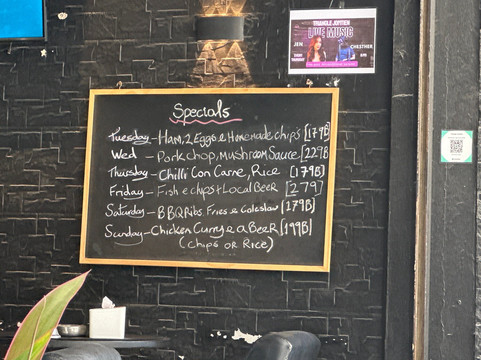 TRIANGLE JOMTIEN
LIVE MUSIC
JEN
CHESTHER
Specials
Tuesday - Ham, 2 Eggs & Homemade chips [179B]
Wed - Pork chop, Mushroom Sauce [229B]
Thursday - Chilli Con Carne, Rice [179B]
Friday - Fish & chips + Local Beer [279]
Saturday - BBQ Ribs, Fries & Coleslaw [179B]
Sunday - Chicken Curry & a Beer [199B]
(Chips or Rice)